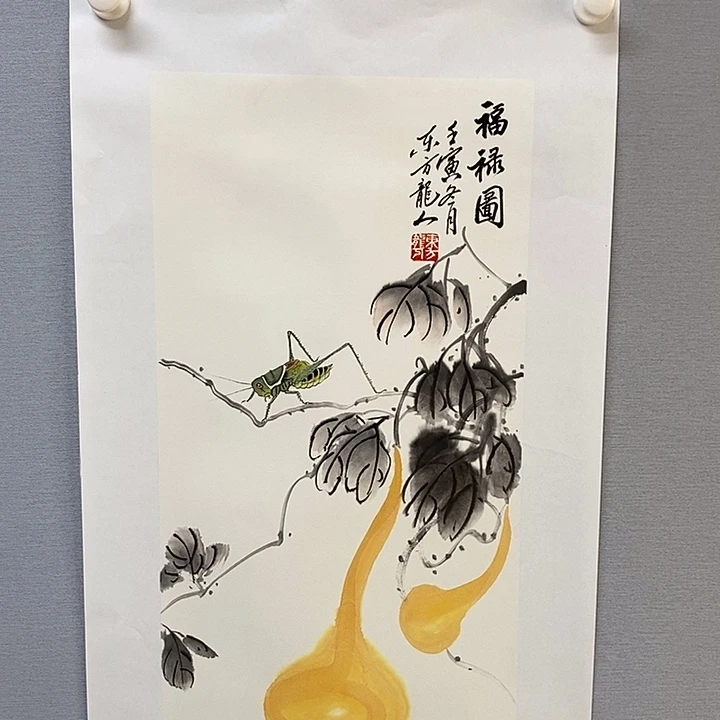 福禄圖
壬寅冬月
东方龍人